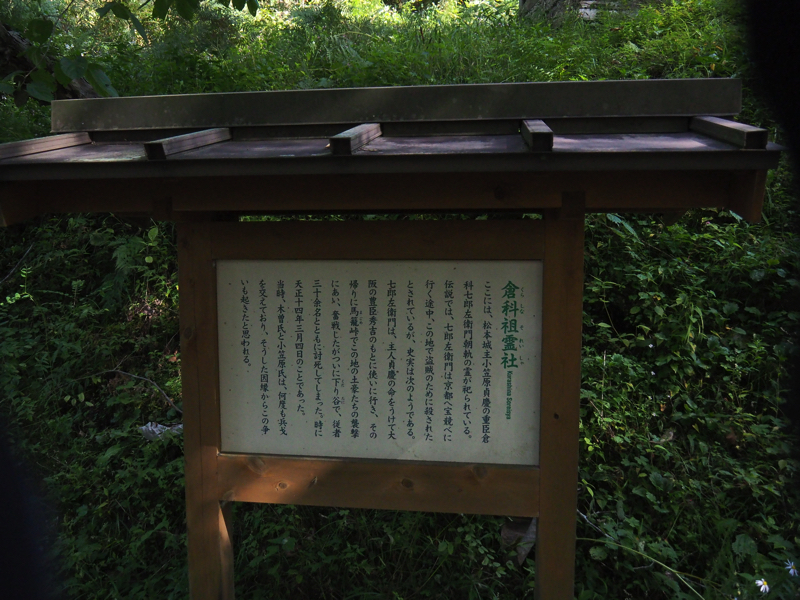 倉科祖霊社 Kurashina Soreisya
ここには、松本城主小笠原貞慶の重臣倉
科七郎左衛門朝軌の霊が祀られている。
伝説では、七郎左衛門は京都へ宝競べに
行く途中、この地で盗賊のために殺された
とされているが、史実は次のようである。
七郎左衛門は、主人貞慶の命をうけて大
阪の豊臣秀吉のもとに使いに行き、その
帰りに馬籠峠でこの地の土豪たちの襲撃
にあい、奮戦したがついに下り谷で、従者
三十余名とともに討死してしまった。時に
天正十四年三月四日のことであった。
当時、木曽氏と小笠原氏は、何度も兵戈
を交えており、そうした因縁からこの争
いも起きたと思われる。